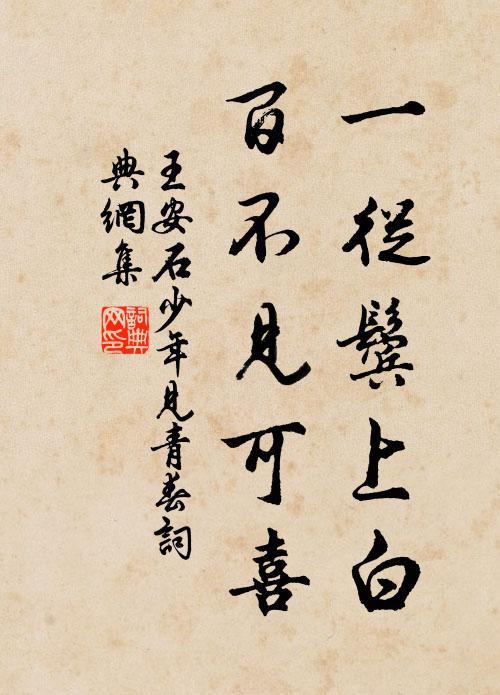 一從鬢上白
百不見可喜
王安石少年見青春詞
典網集
詞典網印